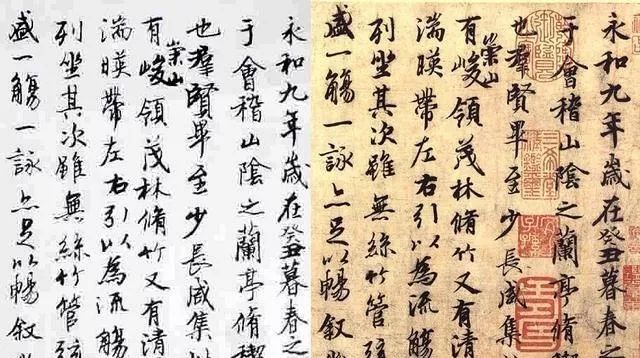 永和九年歲在癸丑暮春之
于會稽山陰之蘭亭脩禊
也羣賢畢至少長咸集
有崇山峻領茂林脩竹又有清
湍暎帶左右引以為流觴
列坐其次雖無絲竹管弦
盛一觴一詠亦足以暢敘
永和九年歲在癸丑暮春之
于會稽山陰之蘭亭脩
也羣賢畢至少長咸集
有崇山峻領茂林脩竹又有清
湍暎帶左右引以為流觴
列坐其次雖無絲竹管弦
盛一觴一詠亦足以暢敘